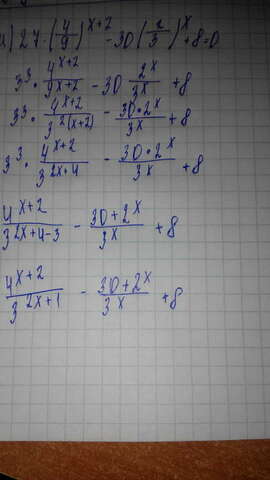 а) 27·(4/9)^(x+2) - 30(2/3)^x + 8=0
3^3 · 4^(x+2)/9^(x+2) - 30 2^x/3^x + 8
3^3 · 4^(x+2)/3^(2(x+2)) - 30·2^x/3^x + 8
3^3 · 4^(x+2)/3^(2x+4) - 30·2^x/3^x + 8
4^(x+2)/3^(2x+4-3) - 30+2^x/3^x + 8
4^(x+2)/3^(2x+1) - 30+2^x/3^x + 8